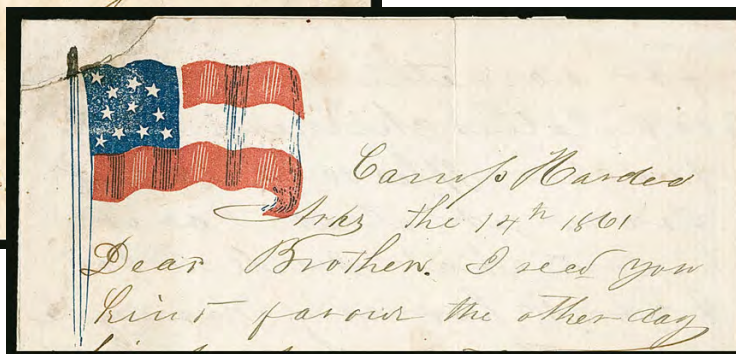 Camp Hardee
Arks the 14th 1861
Dear Brother. I recd you
kind favour the other day